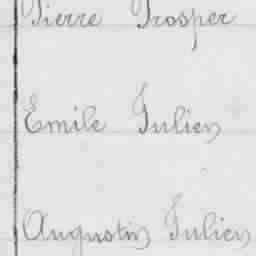 Pierre Prosper
Emile Julien
Augustin Julien